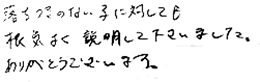 落ちつきのない子に対しても
根気よく説明して下さいました。
ありがとうございます。